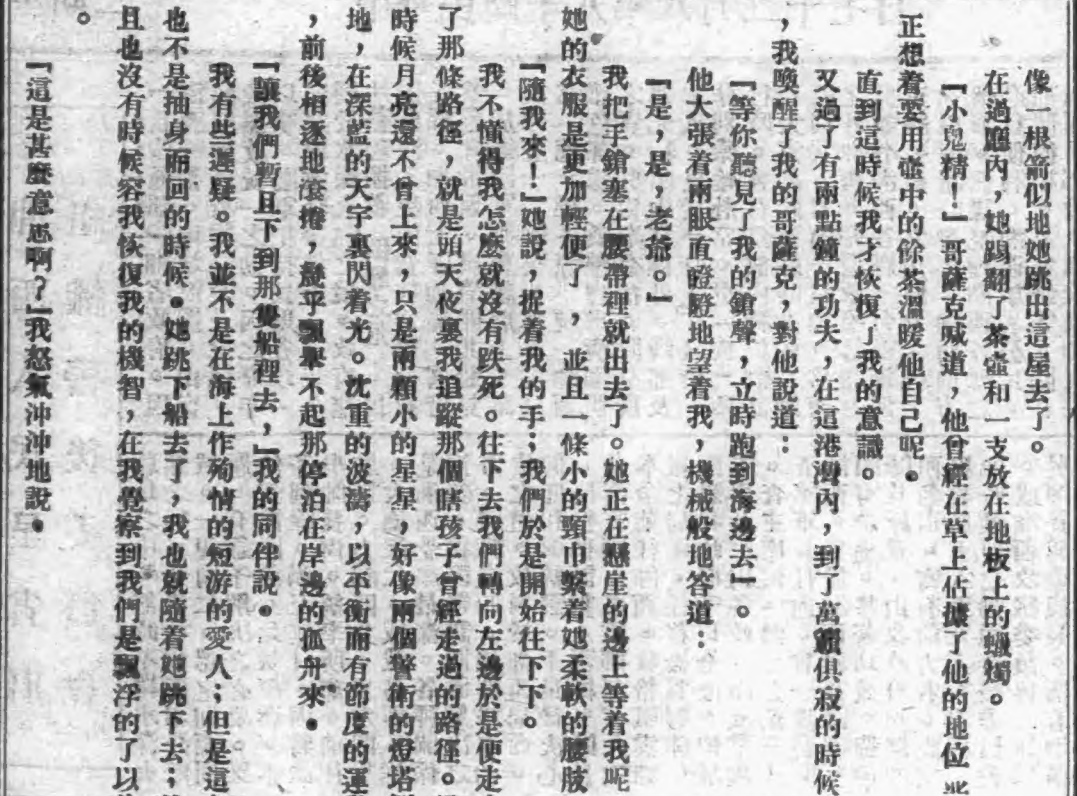 像一根箭似地她跳出這屋去了。
在過廳內，她踢翻了茶壺和一支放在地板上的蠟燭。
『小鬼精！』哥薩克喊道，他曾經在草上佔據了他的地位
正想着要用壺中的餘茶溫暖他自己呢。
直到這時候我才恢復了我的意識。
又過了有兩點鐘的功夫，在這港灣內，到了萬籟俱寂的時候
，我喚醒了我的哥薩克，對他說道：
『等你聽見了我的鎗聲，立時跑到海邊去』。
他大張着兩眼直瞪瞪地望着我，機械般地答道：
『是，是，老爺。』
我把手鎗塞在腰帶裡就出去了。她正在懸崖的邊上等着我呢
她的衣服是更加輕便了，並且一條小的頸巾繫着她柔軟的腰肢
『隨我來！』她說，捉着我的手；我們於是開始往下下。
我不懂得我怎麼就沒有跌死。往下去我們轉向左邊於是便走
了那條路徑，就是頭天夜裏我追蹤那個瞎孩子曾經走過的路徑。
時候月亮還不曾上來，只是兩顆小的星星，好像兩個警衛的燈塔
地，在深藍的天宇裏閃着光。沈重的波濤，以平衡而有節度的運
，前後相逐地滾捲，幾乎飄舉不起那停泊在岸邊的孤舟來。
『讓我們暫且下到那隻船裡去，』我的同伴說。
我有些遲疑。我並不是在海上作殉情的短游的愛人；但是這
也不是抽身而回的時候。她跳下船去了，我也就隨着她跳下去；
且也沒有時候容我恢復我的機智，在我覺察到我們是飄浮的了以
。
『這是甚麼意思啊？』我怒氣沖沖地說。